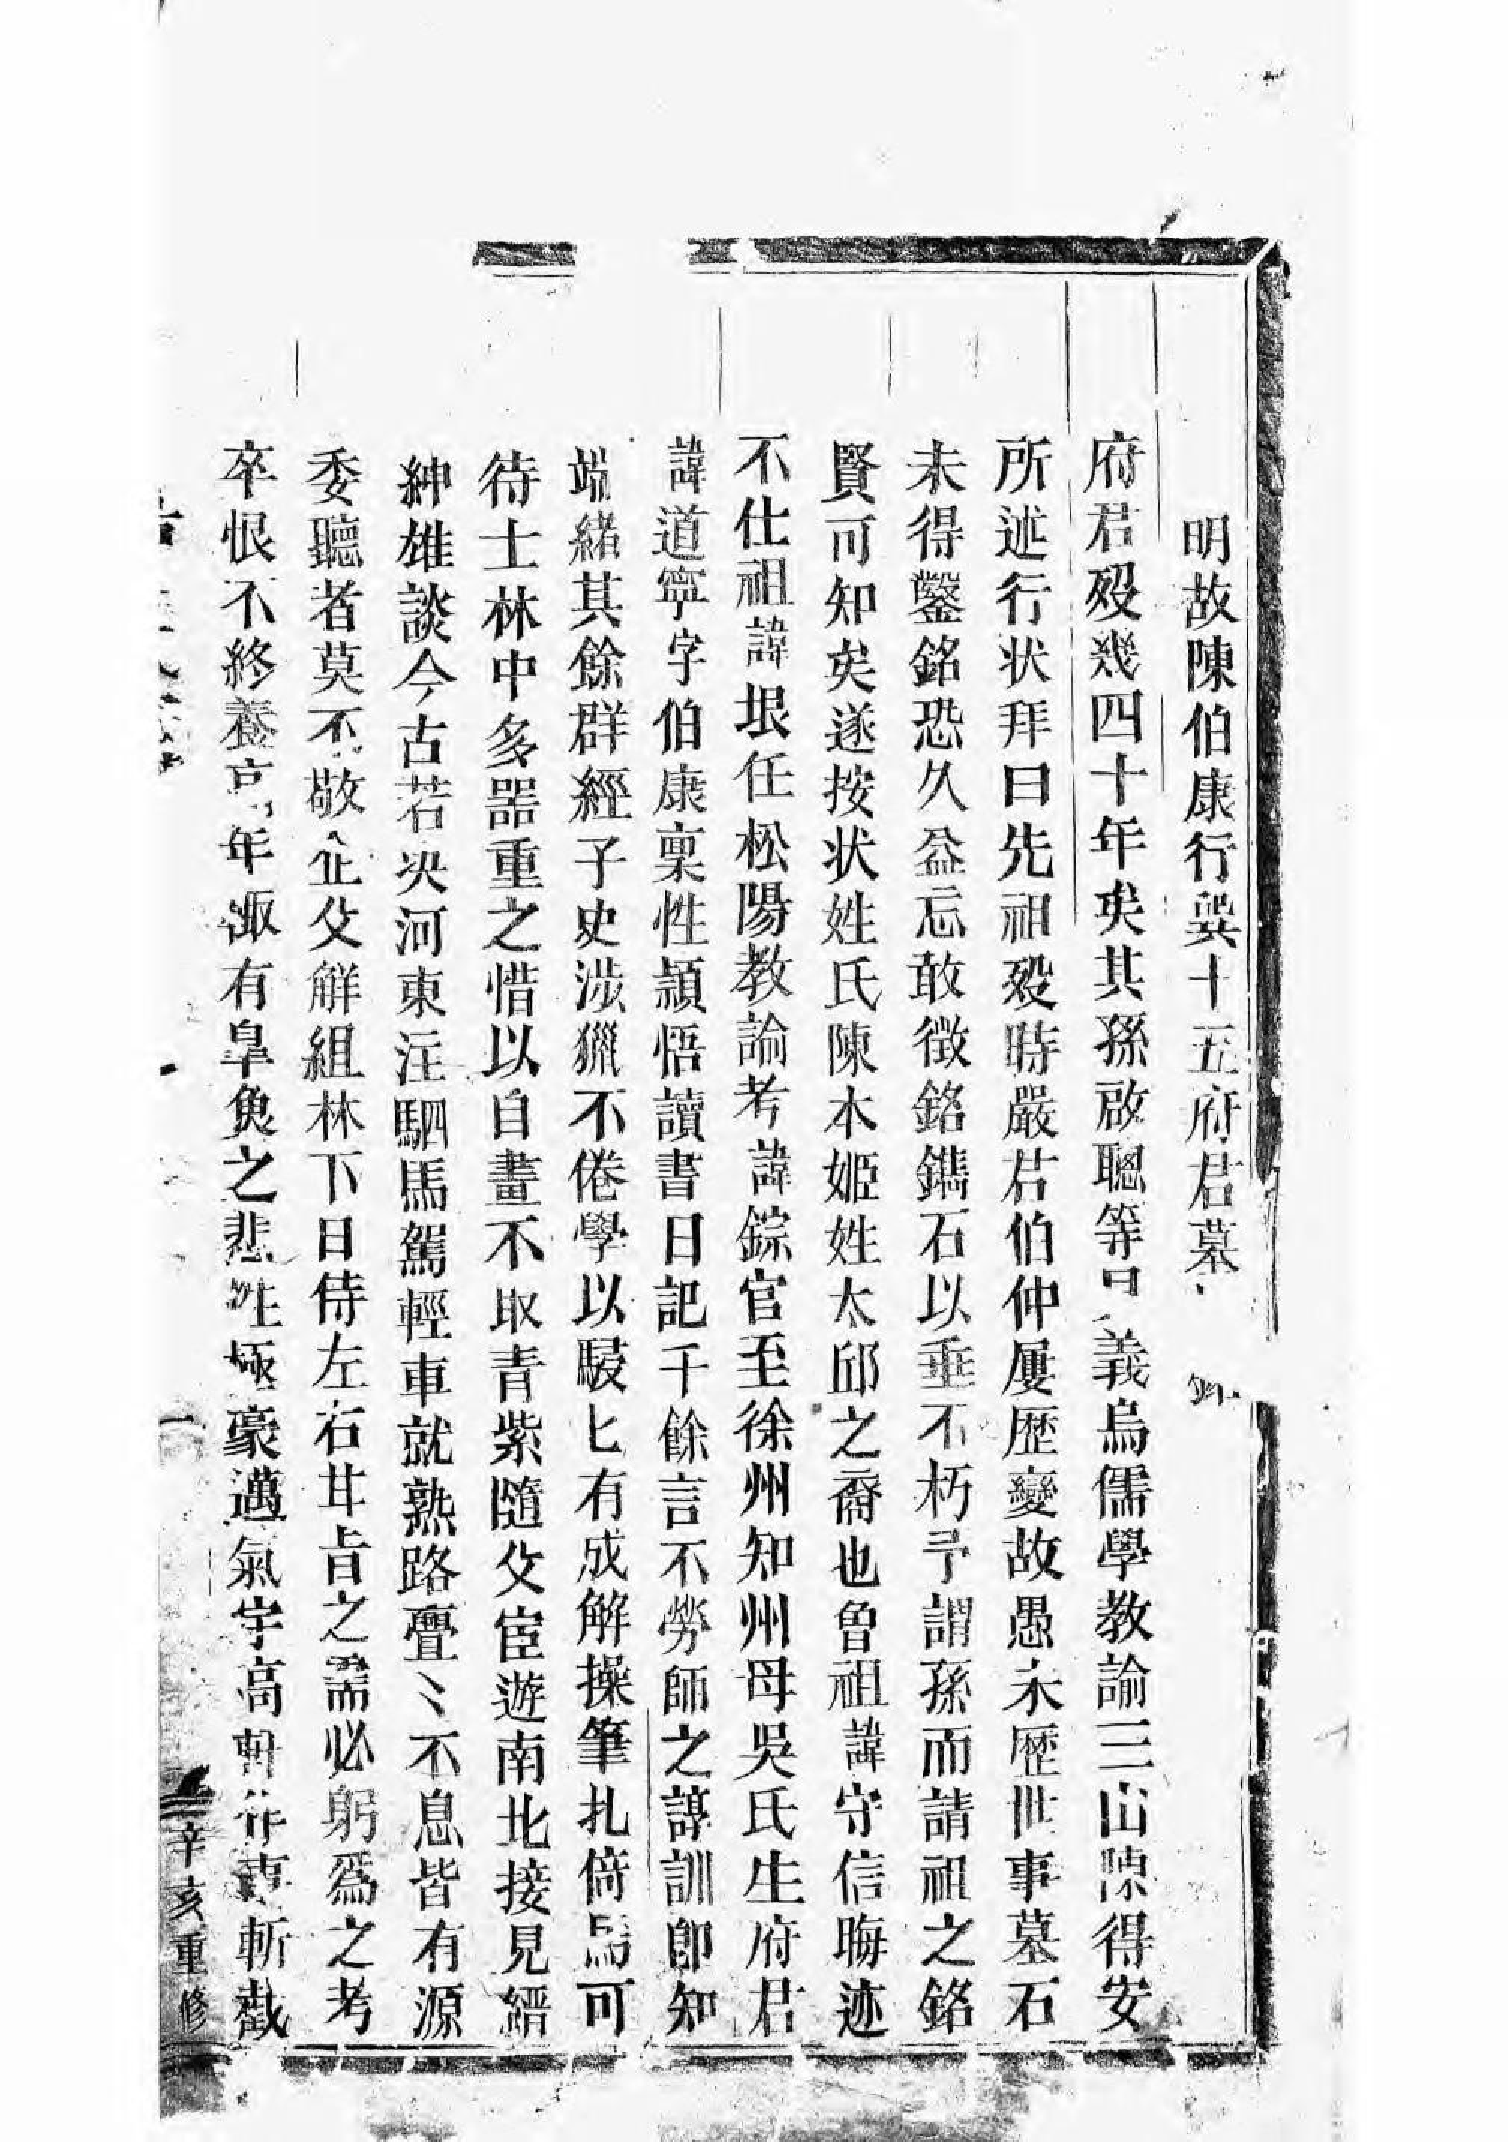 明故陳伯康行巽十五府君墓
府君殁幾四十年矣其孫啟聰等曰義烏儒學教諭三山陳得安
所述行状拜曰先祖殁時嚴君伯仲屢歴變故愚未歴世事墓石
未得鑿銘恐久益忘敢徴銘鐫石以垂不朽予謂孫而請祖之銘
賢可知矣遂按状姓氏陳本姬姓太邱之裔也曾祖諱守信晦迹
不仕祖諱垠任松陽教諭考諱錝官至徐州知州母吳氏生府君
諱道寧字伯康稟性頴悟讀書日記千餘言不勞師之諄訓即知
端緒其餘群經子史涉獵不倦學以駸匕有成解操筆扎倚馬可
待士林中多噐重之惜以自畫不取青紫隨父宦遊南北接見縉
紳雄談今古若决河東注駟馬駕輕車就熟路亹〻不息皆有源
委聽者莫不敬企父觧組林下日侍左右甘旨之需必躬爲之考
卒恨不終養年有臯魚之悲性極豪邁氣宇高斬截
辛亥重修